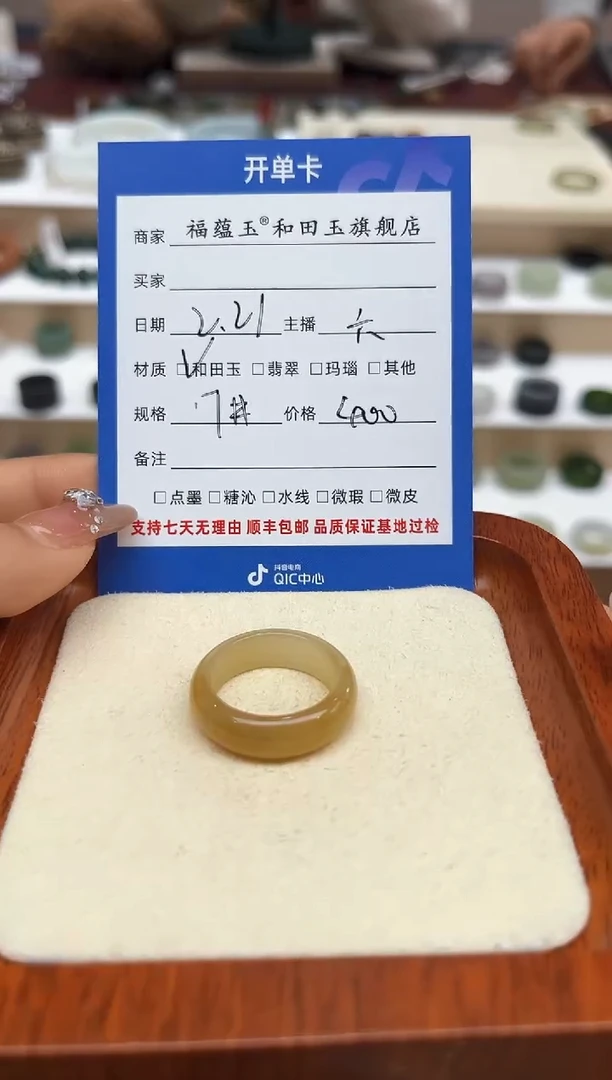 开单卡
商家 福蕴玉®和田玉旗舰店
买家
日期 2.21 主播
材质 ☑和田玉 □翡翠 □玛瑙 □其他
规格 7# 价格
备注
□点墨 □糖沁 □水线 □微瑕 □微皮
支持七天无理由 顺丰包邮 品质保证基地过检
抖音电商
QIC中心